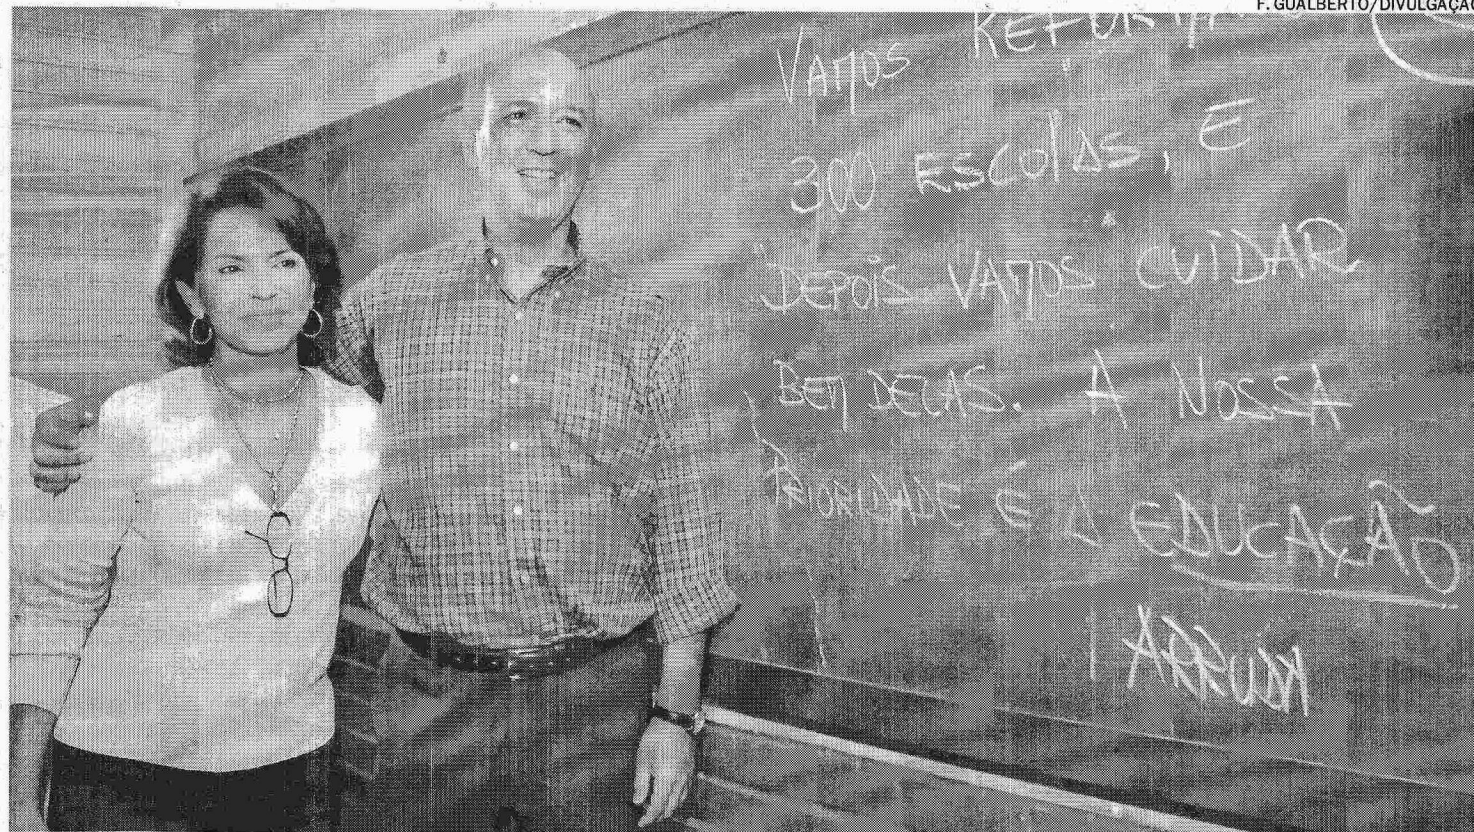 F. GUALBERTO/DIVULGAÇÃO
VAMOS
300 ESCOLAS, E
DEPOIS VAMOS CUIDAR
BEM DELAS. A NOSSA
PRIORIDADE É A EDUCAÇÃO
ARRUDA